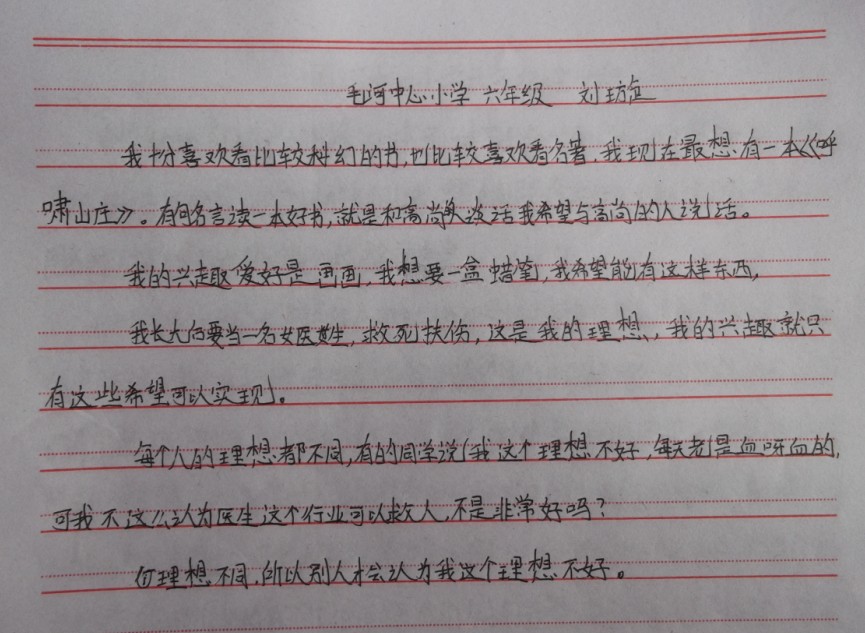 毛河中心小学 六年级 刘玏
我十分喜欢看比较科幻的书,也比较喜欢看名著,我现在最想有一本《呼
啸山庄》。有句名言读一本好书,就是和高尚谈话我希望与高尚的人说话。
我的兴趣爱好是画画,我想要一盒蜡笔,我希望能有这样东西,
我长大后要当一名女医生,救死扶伤,这是我的理想,我的兴趣就只
有这些希望可以实现。
每个人的理想都不同,有的同学说我这个理想不好,每天老是血呀血的,
可我不这么认为医生这个行业可以救人,不是非常好吗?
理想不同,所以别人才会认为我这个理想不好。